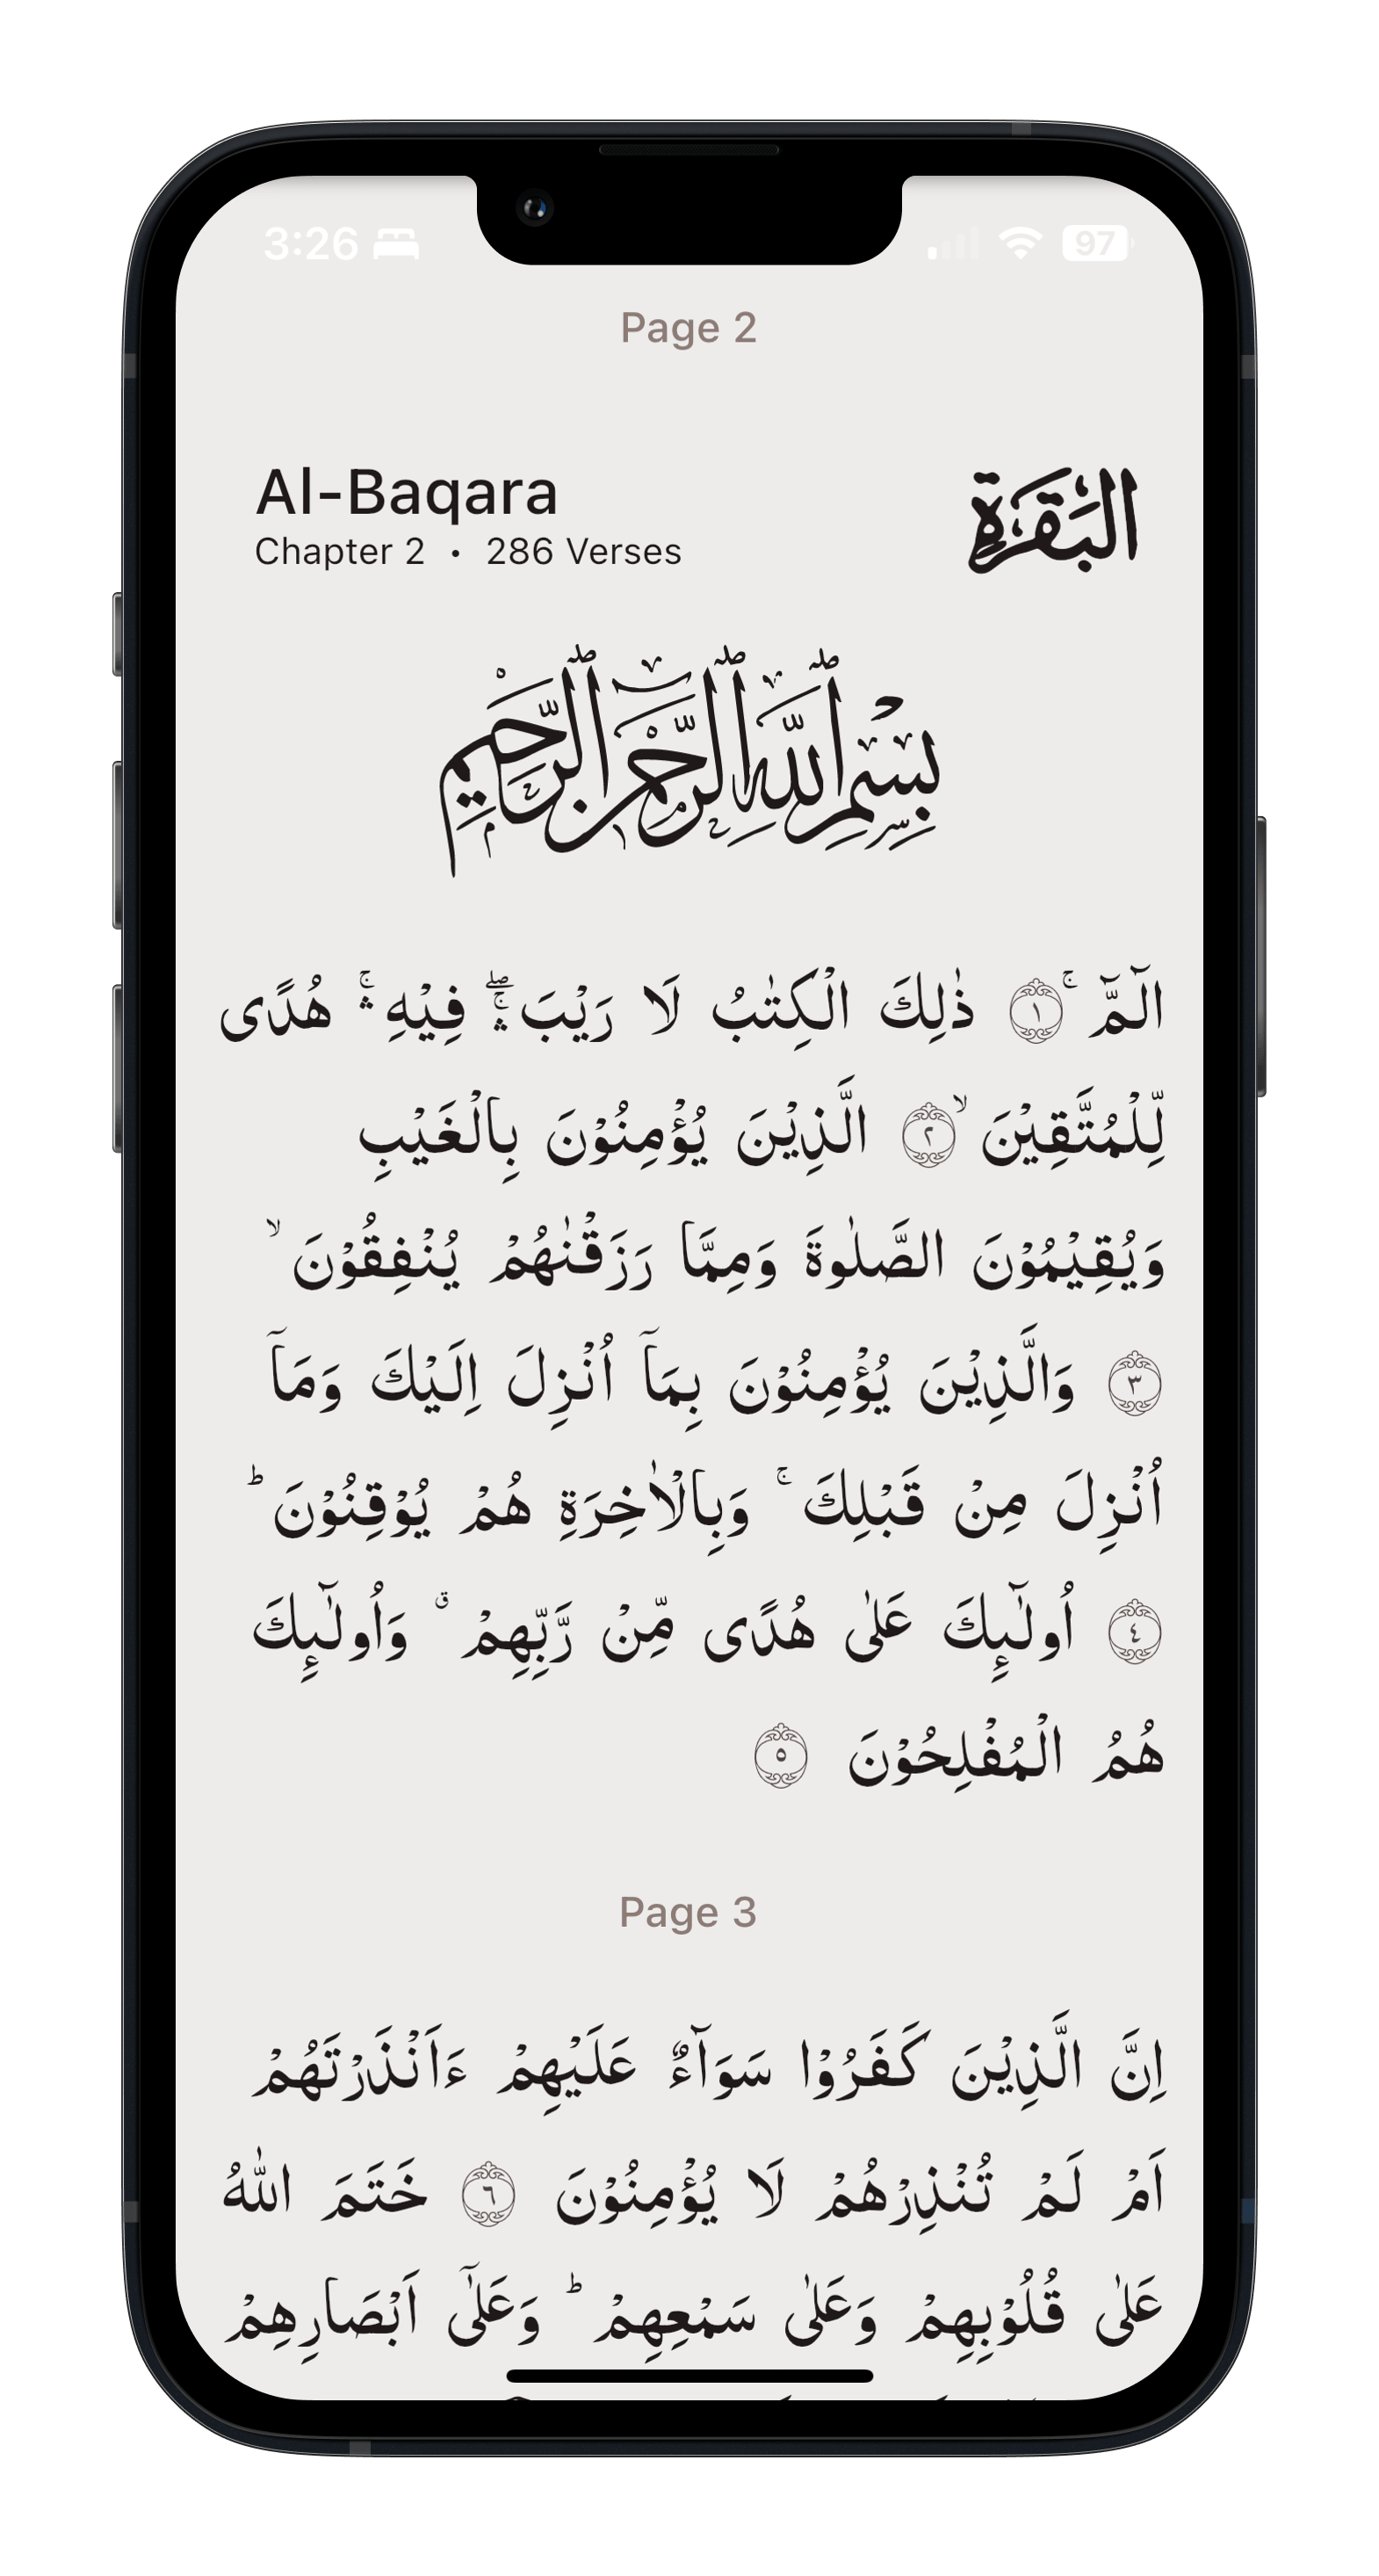 3:26 97
Page 2
Al-Baqara البَقَرَة
Chapter 2 • 286 Verses
بِسْمِ ٱللَّهِ ٱلرَّحْمَٰنِ ٱلرَّحِيمِ
الٓمّٓ ۚ ١ ذٰلِكَ الْكِتٰبُ لَا رَيْبَ ۛۚۖ فِيْهِ ۛۚ هُدًى
لِّلْمُتَّقِيْنَ ۙ ٢ الَّذِيْنَ يُؤْمِنُوْنَ بِالْغَيْبِ
وَيُقِيْمُوْنَ الصَّلٰوةَ وَمِمَّا رَزَقْنٰهُمْ يُنْفِقُوْنَ ۙ
٣ وَالَّذِيْنَ يُؤْمِنُوْنَ بِمَآ اُنْزِلَ اِلَيْكَ وَمَآ
اُنْزِلَ مِنْ قَبْلِكَ ۚ وَبِالْاٰخِرَةِ هُمْ يُوْقِنُوْنَ ؕ
٤ اُولٰٓىِٕكَ عَلٰى هُدًى مِّنْ رَّبِّهِمْ ۗ وَاُولٰٓىِٕكَ
هُمُ الْمُفْلِحُوْنَ ٥
Page 3
اِنَّ الَّذِيْنَ كَفَرُوْا سَوَآءٌ عَلَيْهِمْ ءَاَنْذَرْتَهُمْ
اَمْ لَمْ تُنْذِرْهُمْ لَا يُؤْمِنُوْنَ ٦ خَتَمَ اللّٰهُ
عَلٰى قُلُوْبِهِمْ وَعَلٰى سَمْعِهِمْ ؕ وَعَلٰٓى اَبْصَارِهِمْ